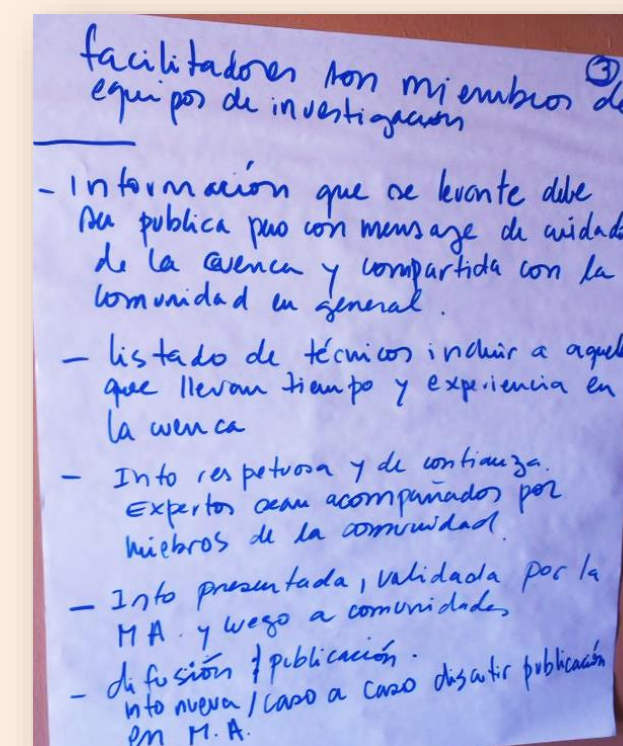 facilitadores son miembros de ③
equipos de investigación
- Información que se levante debe
ser publica pero con mensaje de cuidado
de la cuenca y compartida con la
comunidad en general.
- listado de técnicos incluir a aquell
que llevan tiempo y experiencia en
la cuenca
- Info respetuosa y de confianza.
Expertos sean acompañados por
miebros de la comunidad.
- Info presentada, validada por la
MA. y luego a comunidades
- difusión / publicación.
info nueva / caso a caso discutir publicación
en M.A.